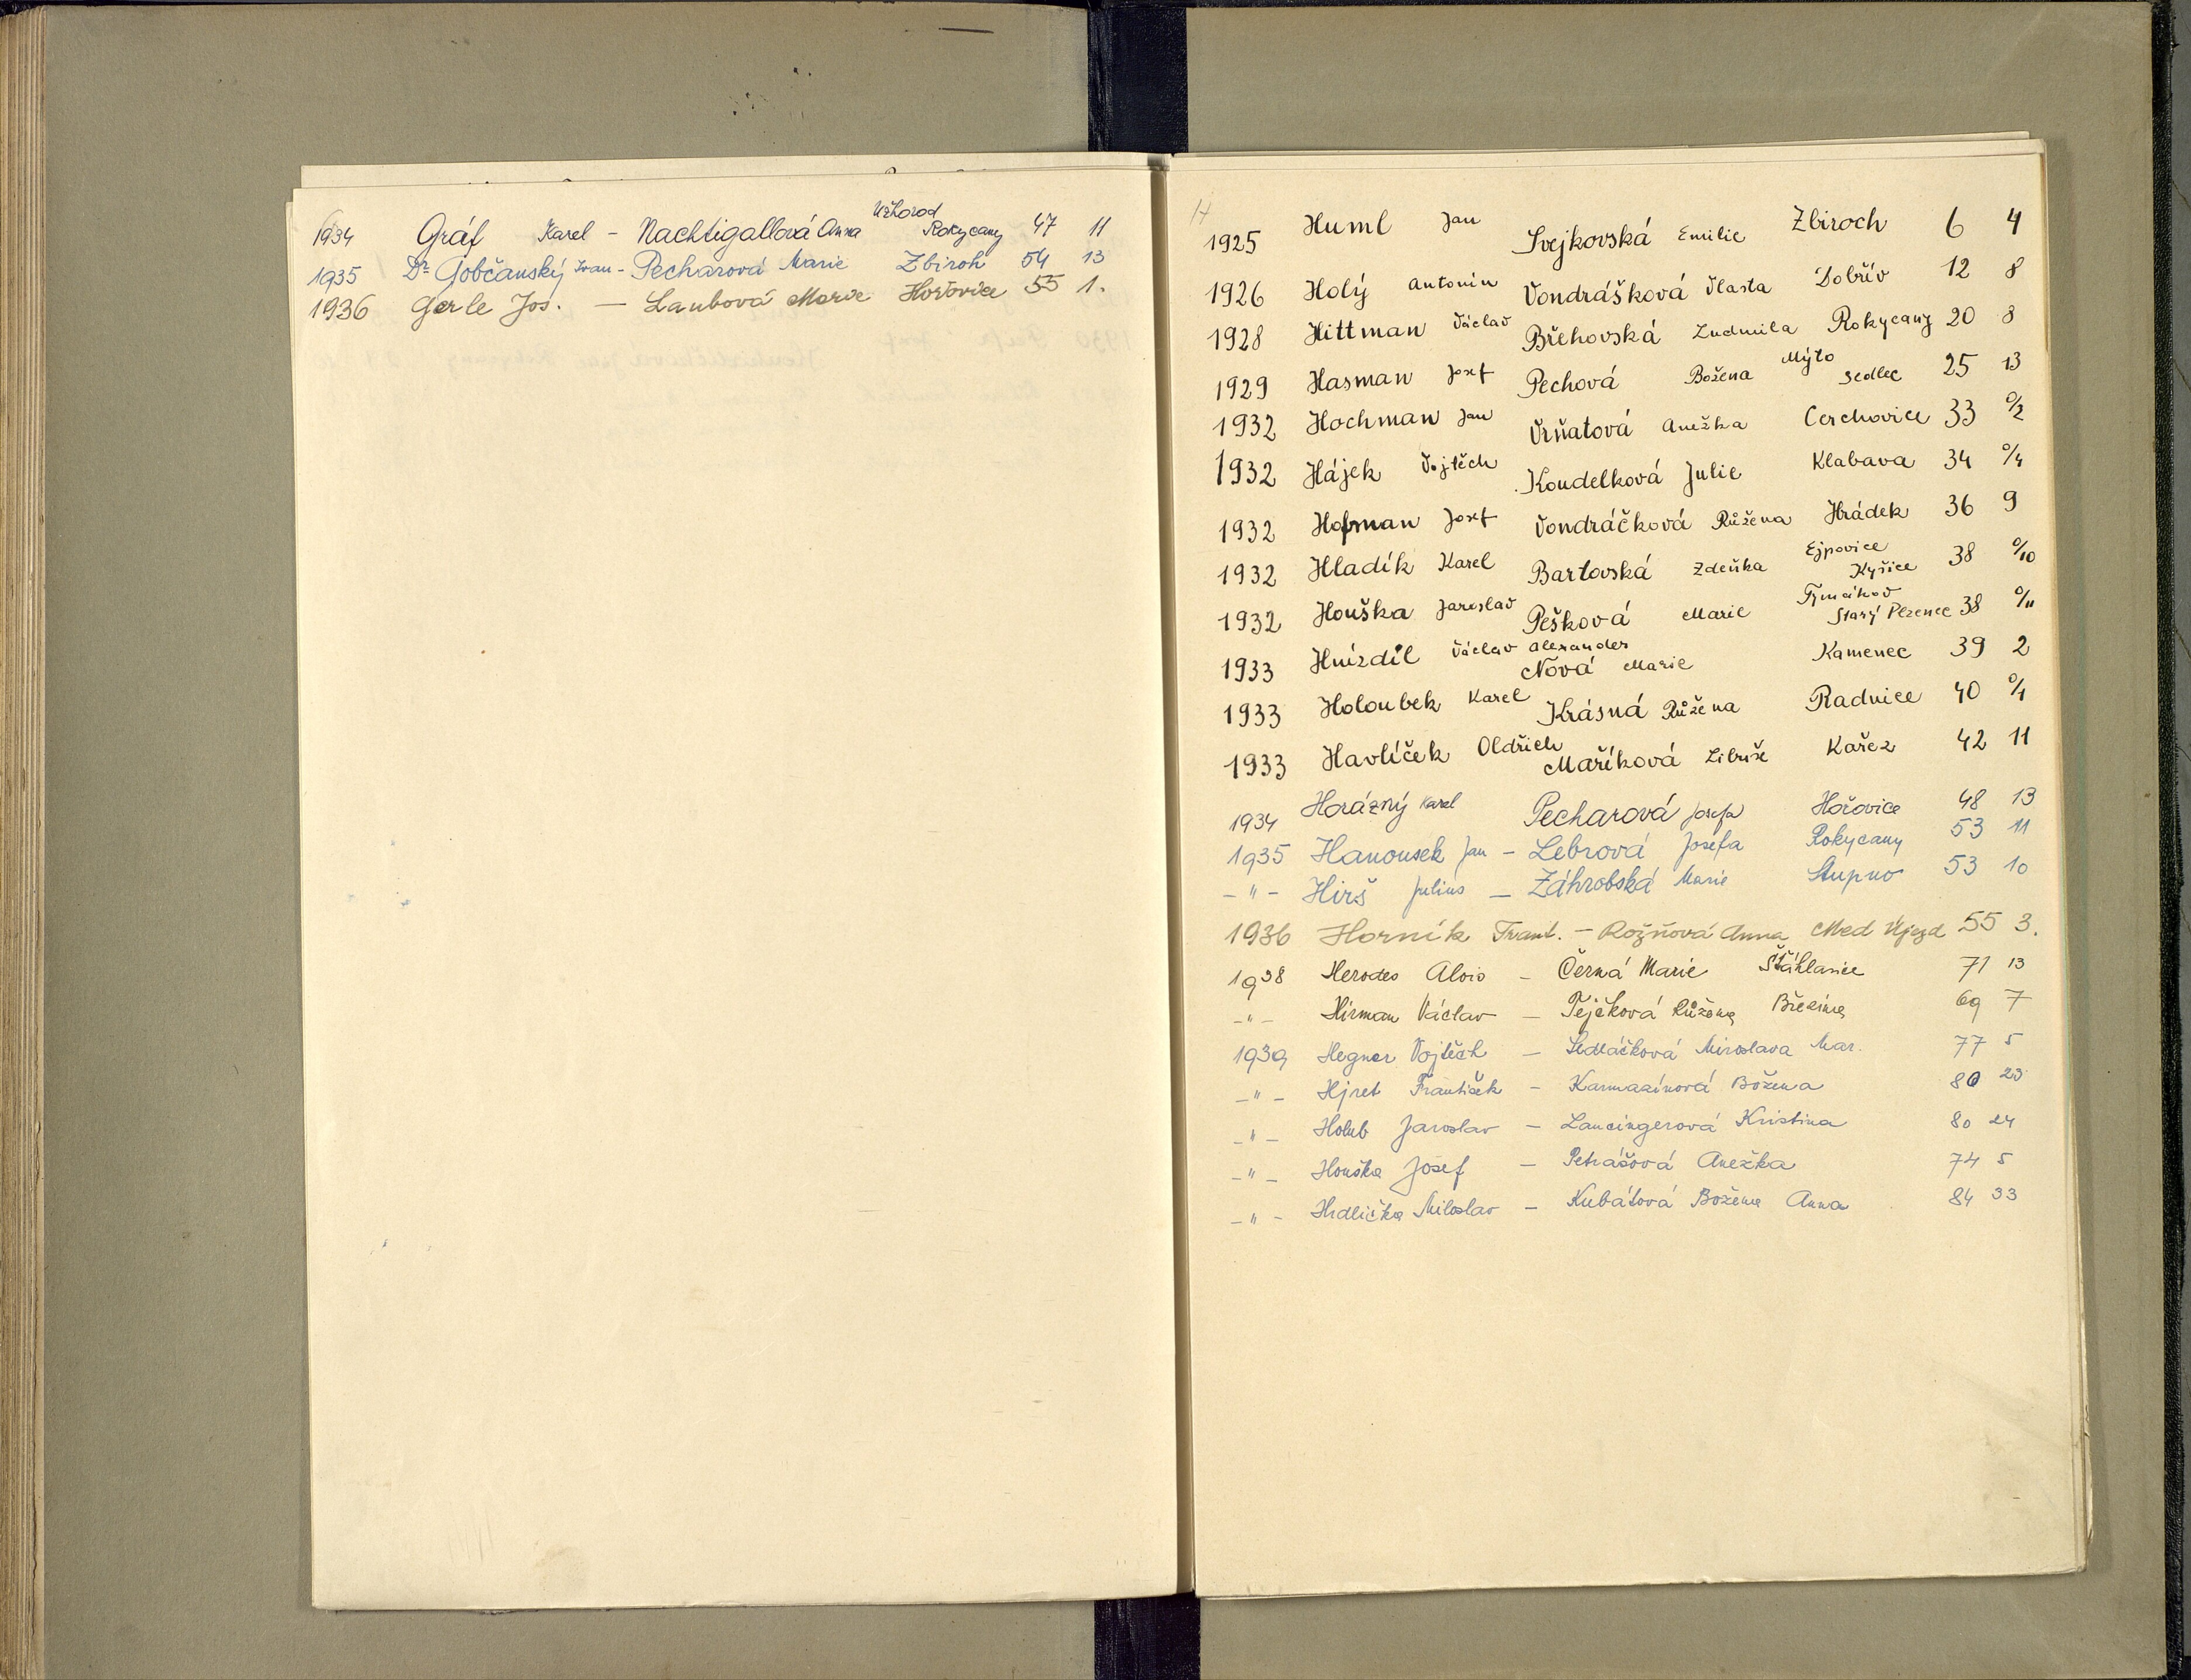 1934 Gráf Karel - Nachtigallová Anna Užhorod Rokycany 47 11
1935 Dr Gobčanský Ivan - Pecharová Marie Zbiroh 54 13
1936 Gerle Jos. — Laubová Marie Hořovice 55 1.
H
1925 Huml Jan Svejkovská Emilie Zbiroch 6 4
1926 Holý Antonín Vondrášková Vlasta Dobřív 12 8
1928 Hittman Václav Břehovská Ludmila Rokycany 20 8
1929 Hasman Josef Pechová Božena Mýto Sedlec 25 13
1932 Hochman Jan Vrňatová Anežka Cerchovice 33 %2
1932 Hájek Vojtěch Koudelková Julie Klabava 34 %4
1932 Hofman Josef Vondráčková Růžena Hrádek 36 9
1932 Hladík Karel Bartovská Zdeňka Ejpovice Kyšice 38 %10
1932 Houška Jaroslav Pešková Marie Tymákov Starý Plzenec 38 %11
1933 Hnízdil Václav Alexander Nová Marie Kamenec 39 2
1933 Holoubek Karel Krásná Růžena Radnice 40 %1
1933 Havlíček Oldřich Maříková Libuše Kařez 42 11
1934 Horázný Karel Pecharová Josefa Hořovice 48 13
1935 Hanousek Jan - Lebrová Josefa Rokycany 53 11
-"- Hirš Julius - Záhrobská Marie Stupno 53 10
1936 Horník Frant. - Rožňová Anna Med Újezd 55 3.
1938 Herodes Alois - Černá Marie Šťáhlavice 71 13
-"- Hirman Václav - Tejčková Růžena Březina 69 7
1939 Hegner Vojtěch - Sedláčková Miroslava Mar. 77 5
-"- Hjret František - Karmazínová Božena 80 23
-"- Holub Jaroslav - Lancingerová Kristina 80 24
-"- Houška Josef - Petrášová Anežka 74 5
-"- Hrdlička Miloslav - Kubátová Božena Anna 84 33